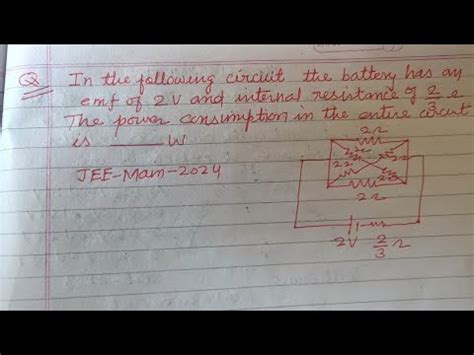 Q In the following circuit the battery has an
emf of 2V and internal resistance of 2/3 Ω
The power consumption in the entire circuit
is ______ W
JEE-Main-2024
2Ω
2Ω 2Ω
2Ω 2Ω
2Ω
2V 2/3 Ω